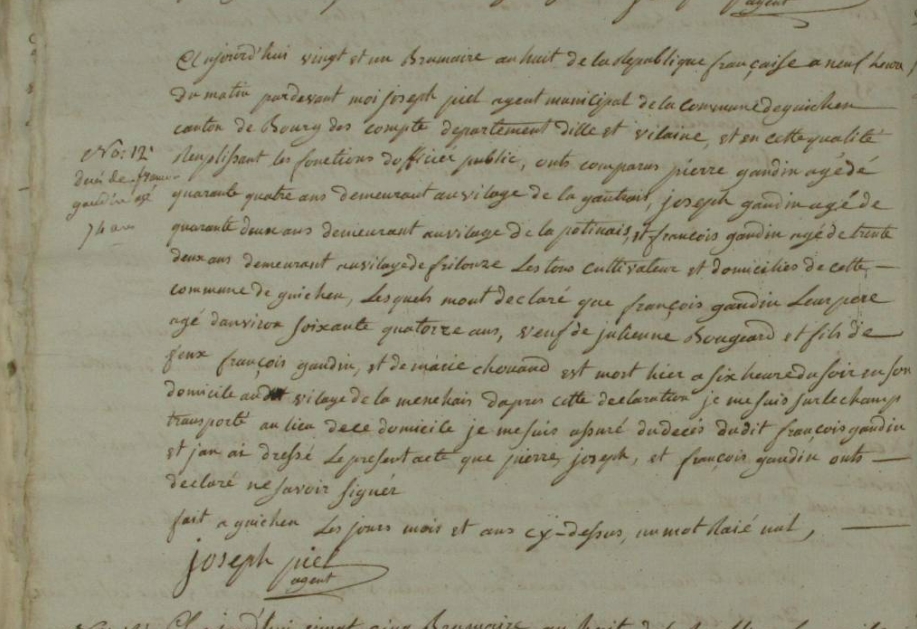 agent
Aujourd'hui vingt et un Brumaire an huit de la republique française a neuf heure
Du matin pardevant moi joseph piel agent municipal de la Commune de guichen
canton de Bourg des compte departement dille et vilaine, et en cette qualité
Remplissant les fonctions dofficier public, onts comparus pierre gaudin agé dé
quarante quatre ans demeurant au vilage de la gautrais, joseph gaudin agé de
quarante deux ans demeurant au vilage de la potinais, et françois gaudin agé de trente
deux ans demeurant au vilage de frilouze Les tous cultivateur et domiciliés de cette
commune de guichen, Lesquels mont declaré que françois gaudin Leur pere
agé danviron soixante quatorze ans, veuf de julienne Bougeard et fils de
feux françois gaudin, et de marie chouand est mort hier a six heure du soir en son
domicile au dit vilage de la menehais dapres cette declaration je me suis sur le champ
transporté au lieu de ce domicile je me suis assuré du deces du dit françois gaudin
et jan ai dressé Le present acte que pierre, joseph, et françois gaudin onts
declaré ne savoir signér
fait a guichen Les jours mois et ans cy-dessus, un mot Raié nul,
joseph piel
agent
No: 12
decé de
gaudin agé
74 ans